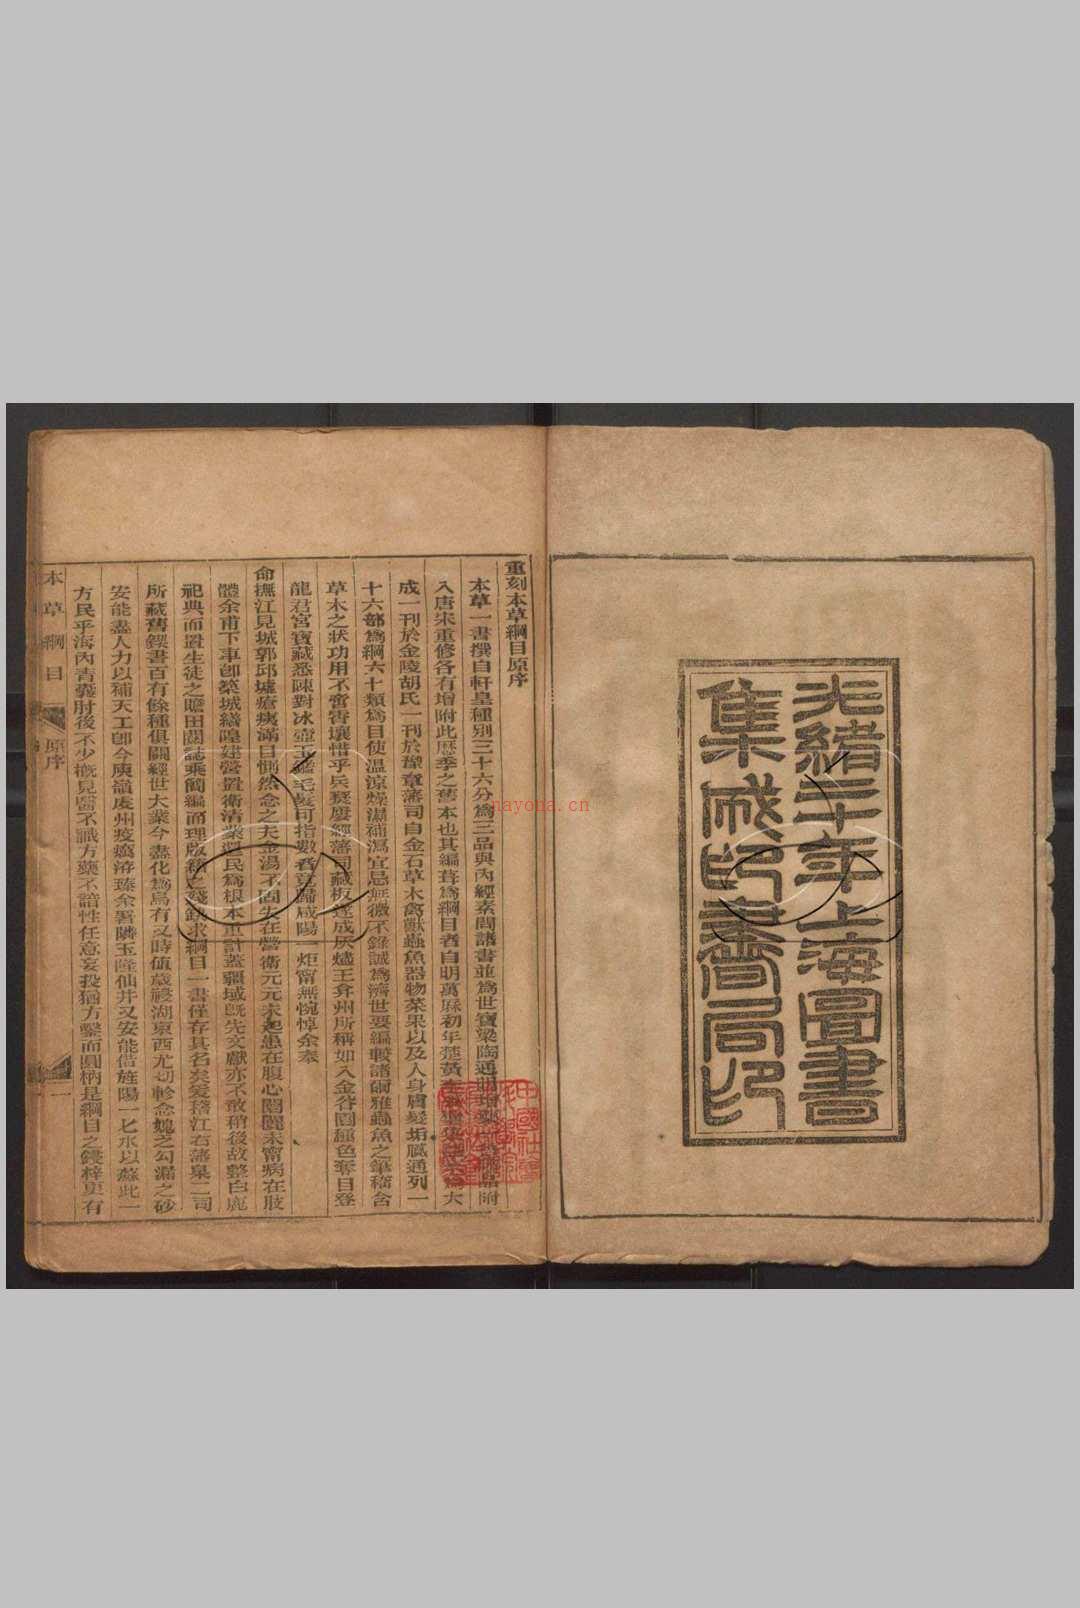 光緒三十年上海圖書
集成印書局印
重刻本草綱目原序
本草一書撰自軒皇種別三十六分爲三品與內經素問諸書並爲世寶梁陶通明增
入唐宋重修各有增附此歷季之舊本也其編葺爲綱目者自明萬厤初年楚黃
成一刊於金陵胡氏一刊於豫章藩司自金石草木禽獸蟲魚器物菜果以及人身膚髮垢膩通列一
十六部爲綱六十類爲目使溫涼燥濕補瀉宜忌無微不錄誠爲濟世要編較諸爾雅蟲魚之筆稽含
草木之狀功用不啻霄壤惜乎兵燹屢經藩司藏板遂成灰燼王弇州所稱如入金谷園種色奪目登
龍君宮寶藏悉陳對冰壺玉鑑毛髮可指數者竟歸咸陽一炬甯無惋悼余奉
命撫江見城郭邱墟瘡痍滿目惻然念之夫金湯不固失在營衛元元未起患在腹心閭閻未甯病在肢
體余甫下車卽築城繕隍建營置衛清業遝民爲根本重計蓋疆域旣先文獻亦不敢稍後故整白鹿
祀典而置生徒之贍田閱誌乘簡編而理版籍之殘缺求綱目一書僅存其名矣爰稽江右藩臬二司
所藏舊鍥書百有餘種俱關經世大業今盡化爲烏有又時値歲祲湖東西尤切軫念媿乏勾漏之砂
安能盡人力以補天工卽今庾嶺虔州疫癘洊臻余署隣玉隆仙井又安能借旌陽一匕水以蘇此一
方民乎海內青囊肘後不少槪見醫不識方藥不諳性任意妄投猶方鑿而圓枘是綱目之鋟梓更有
本草綱目 原序 一
nayona.cn